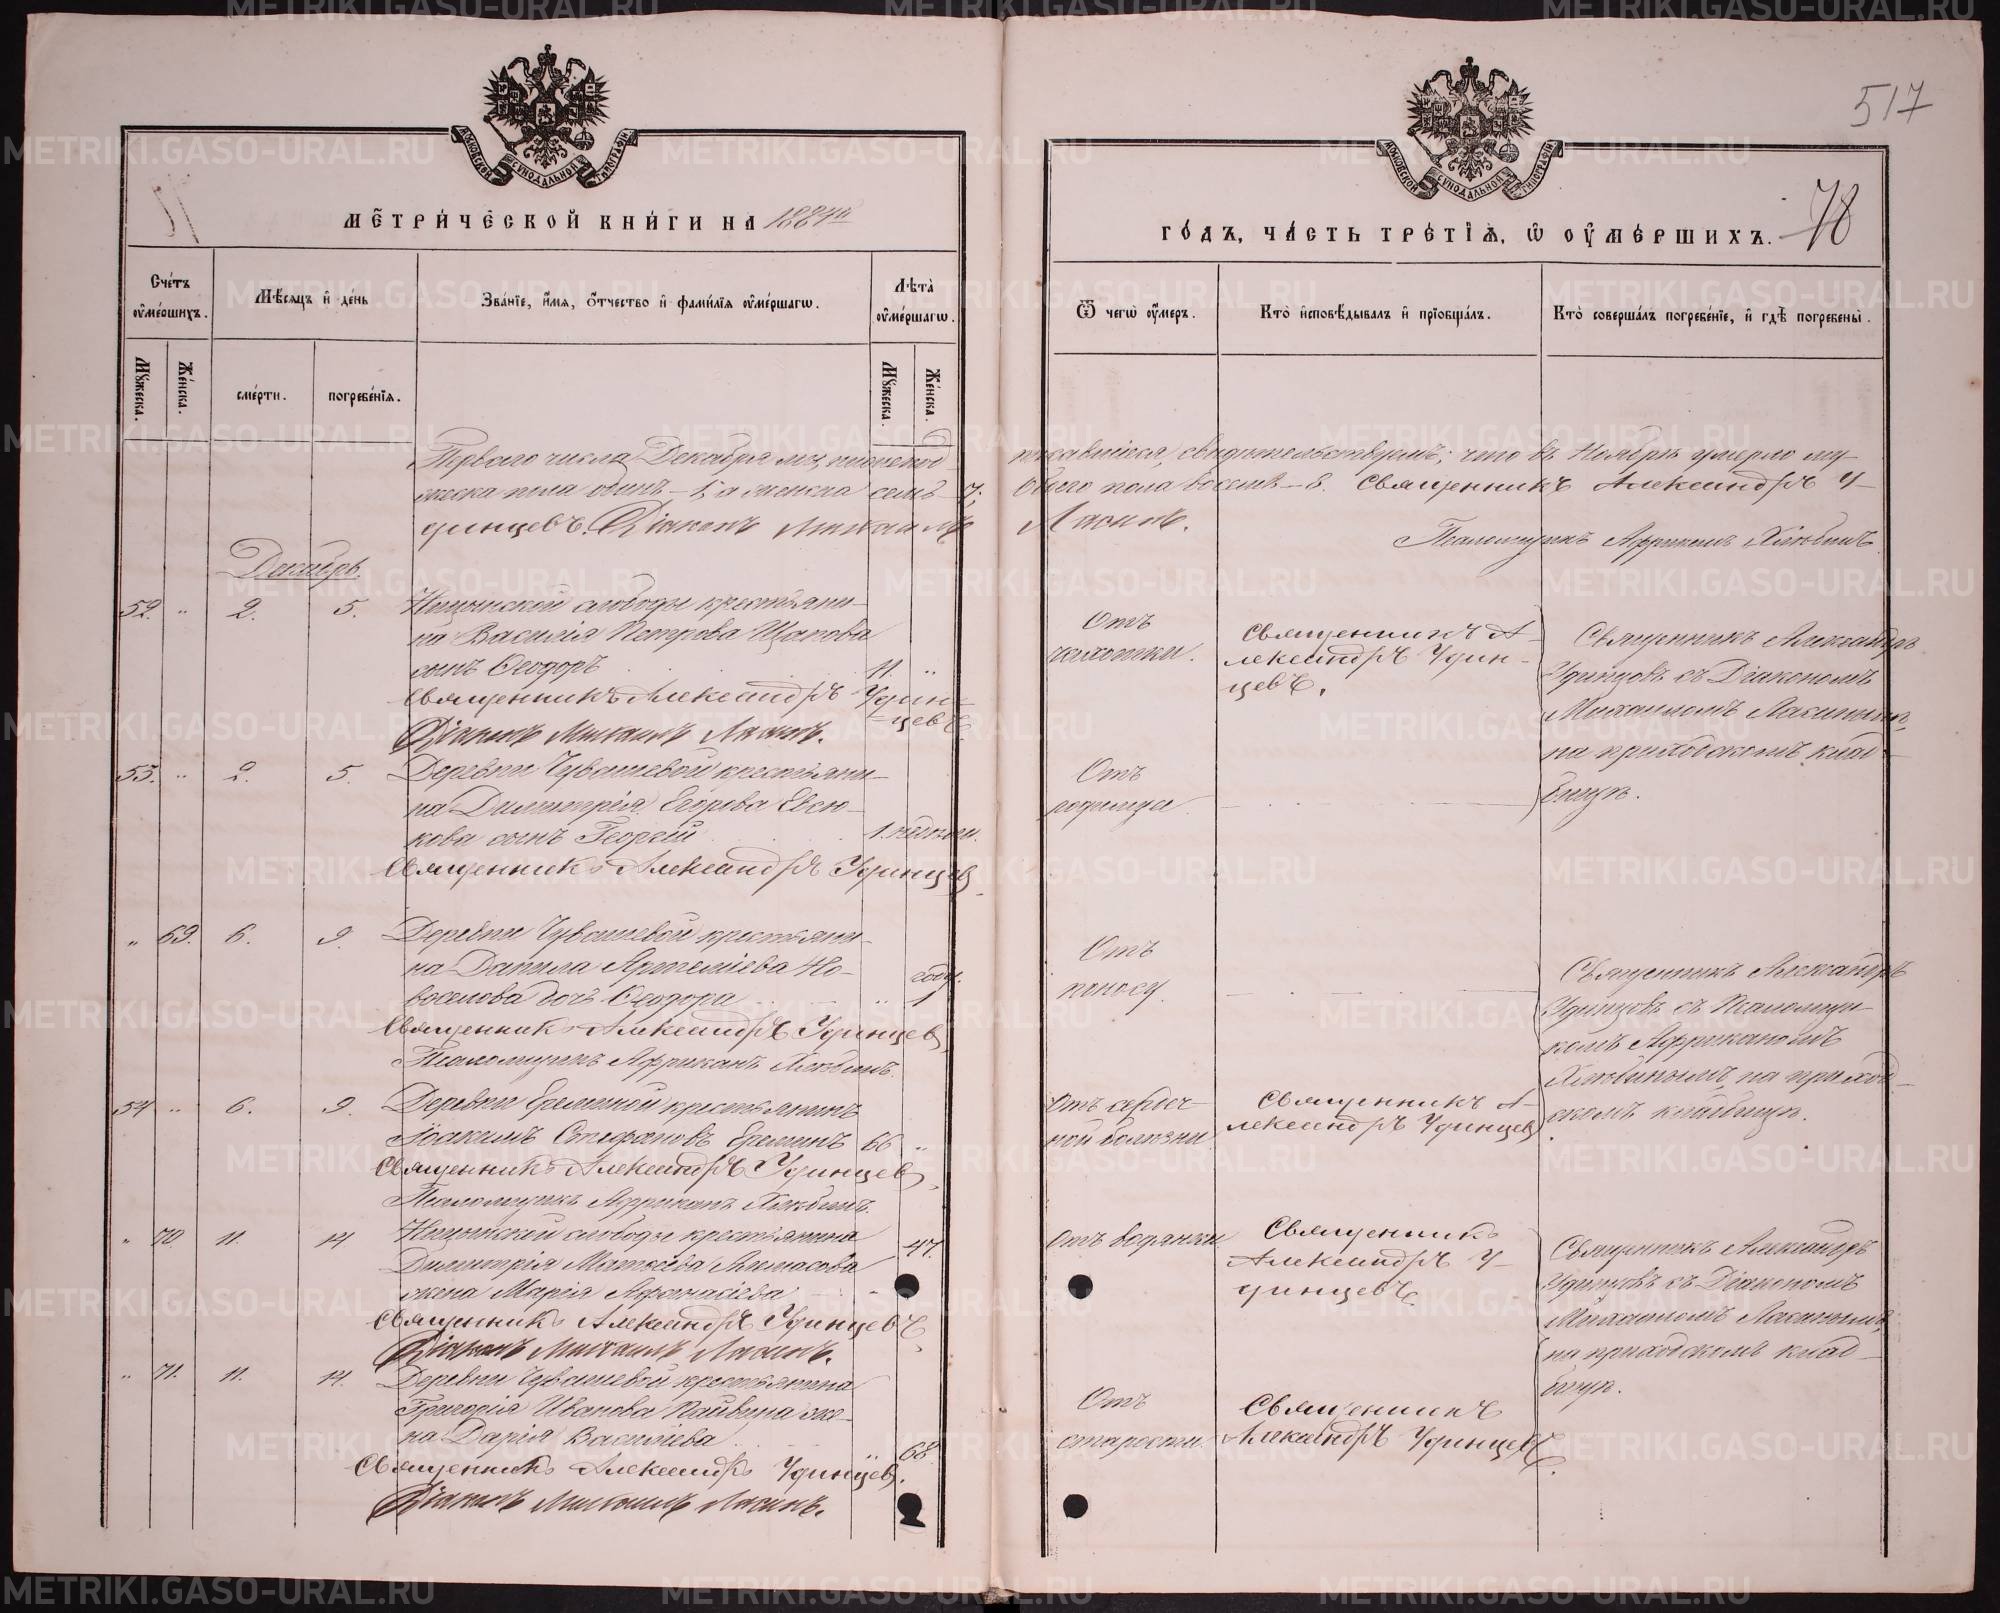 517
78
МОСКОВСКОЙ СУНОДАЛЬНОЙ ТИПОГРАФІИ
МОСКОВСКОЙ СУНОДАЛЬНОЙ ТИПОГРАФІИ
МЕТРИЧЕСКОЙ КНИГИ НА 1884й
ГОДЪ, ЧАСТЬ ТРЕТІЯ, Ѡ ОУМЕРШИХЪ.
Счетъ оумершихъ.
Мѣсяцъ и день
Званіе, имя, отчество и фамилія оумершагѡ.
Лѣта оумершагѡ.
Ѿ чегѡ оумеръ.
Кто исповѣдывалъ и пріобщалъ.
Кто совершалъ погребеніе, и гдѣ погребены.
Мужеска.
Женска.
смерти.
погребенія.
Мужеска.
Женска.
Перваго числа Декабря мца, нижепод-
писавшіеся, свидѣтельствуемъ, что въ Ноябрѣ умерло му-
жеска пола одинъ – 1, а женска семь – 7;
обоего пола восемь – 8. Священникъ Александръ У-
динцевъ. Діаконъ Михаилъ
Ласинъ.
Псаломщикъ Африканъ Хлѣбинъ.
Декабрь.
52. „ 2. 5. Ницынской слободы крестьяни-
на Василія Петрова Щапова
сынъ Ѳеодоръ 11. „
Священникъ Александръ Удин-
цевъ.
Діаконъ Михаилъ Ласинъ.
Отъ
чахотки.
Священникъ А-
лександръ Удин-
цевъ.
Священникъ Александръ
Удинцовъ съ Діакономъ
Михаиломъ Ласинымъ,
на приходскомъ клад-
бищѣ.
53. „ 2. 5. Деревни Чувашевой крестьяни-
на Димитрія Егорова Евсю-
кова сынъ Георгій 1. недѣли.
Священникъ Александръ Удинцев
Отъ
родимца
„ 69. 6. 9. Деревни Чувашевой крестьяни-
на Данила Артеміева Но-
воселова дочь Ѳеодора „ году. 1
Священникъ Александръ Удинцев
Псаломщикъ Африканъ Хлѣбинъ.
Отъ
поносу.
Священникъ Александръ
Удинцовъ съ Псаломщи-
комъ Африканомъ
Хлѣбинымъ, на приход-
скомъ кладбищѣ.
54 „ 6. 9. Деревни Ереминой крестьянинъ
Іоакимъ Стефановъ Ереминъ 66 „
Священникъ Александръ Удинцев
Псаломщикъ Африканъ Хлѣбинъ.
Отъ сердеч-
ной болѣзни
Священникъ А-
лександръ Удинцев
„ 70. 11. 14 Ницынской слободы крестьянина
Димитрія Матѳеева
жена Марія Афонасіева „ 47.
Священникъ Александръ Удинцевъ
Діаконъ Михаилъ Ласинъ.
Отъ водянки
Священникъ
Александръ У-
динцевъ
Священникъ Александръ
Удинцовъ съ Діакономъ
Михаиломъ Ласинымъ,
на приходскомъ клад-
бищѣ.
„ 71. 11. 14. Деревни Чувашевой крестьянина
Григорія Иванова Пайвина же-
на Дарія Василіева „ 68.
Священникъ Александръ Удинцев.
Діаконъ Михаилъ Ласинъ.
Отъ
старости.
Священникъ
Александръ Удинцевъ.
METRIKI.GASO-URAL.RU